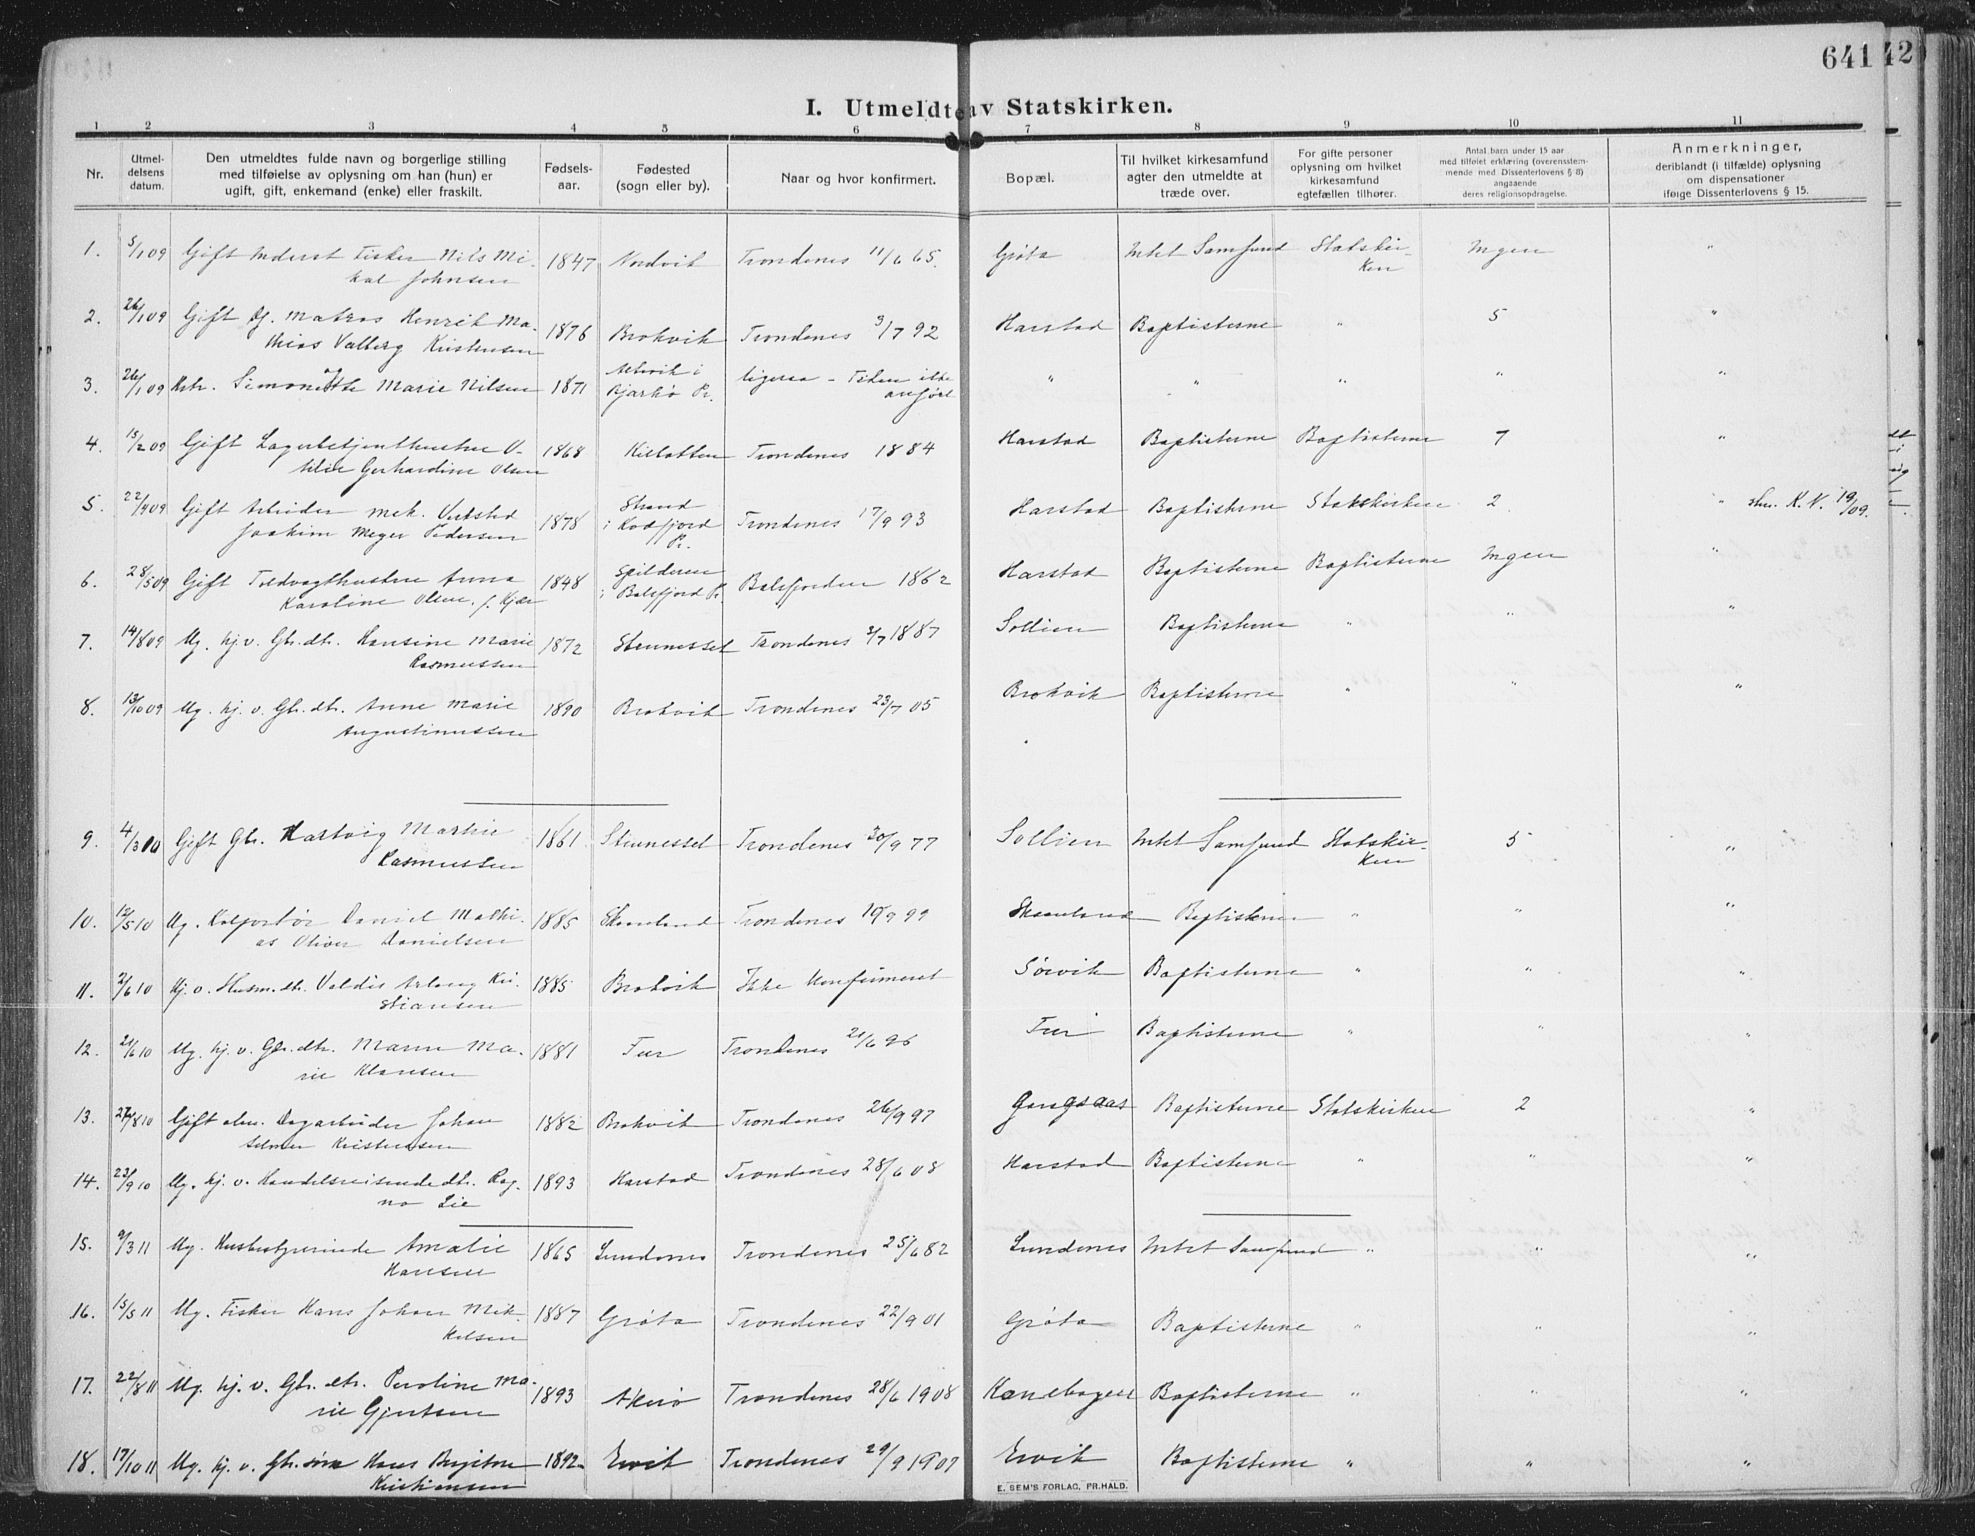 641
42
I. Utmeldte av Statskirken.
1 2 3 4 5 6 7 8 9 10 11
Nr.
Utmel-
delsens
datum.
Den utmeldtes fulde navn og borgerlige stilling
med tilføielse av oplysning om han (hun) er
ugift, gift, enkemand (enke) eller fraskilt.
Fødsels-
aar.
Fødested
(sogn eller by).
Naar og hvor konfirmert.
Bopæl.
Til hvilket kirkesamfund
agter den utmeldte at
træde over.
For gifte personer
oplysning om hvilket
kirkesamfund
egtefællen tilhører.
Antal barn under 15 aar
med tilføiet erklæring (overensstem-
mende med Dissenterlovens § 8)
angaaende
deres religionsopdragelse.
Anmerkninger,
deriblandt (i tilfælde) oplysning
om dispensationer
ifølge Dissenterlovens § 15.
1. 5/1 09 Gift Inderst Fisker Nils Mi- 1847 Nordvik Trondenes 11/6 65. Grøta Intet Samfund Statskir- Ingen "
kal Johnsen ken
2. 26/1 09 Gift Matros Henrik Ma- 1876 Brokvik Trondenes 3/7 92 Harstad Baptisterne " 5 "
thias Valberg Kristensen
3. 26/1 09 Hstr. Marie Nilsen 1871 Bjarkø Pr. ligesaa - Tiden ikke " " " " "
anført
4. 15/2 09 Gift Lagerbetjenthustru O- 1868 Kilbotten Trondenes 1884 Harstad Baptisterne Baptisterne 7 "
tilie Gerhardine Olsen
5. 22/4 09 Gift Arbeider mek. Verksted 1878 Strand Trondenes 17/9 93 Harstad Baptisterne Statskirken 2 " K. N. 19/09.
Joakim Meyer Pedersen i Kvæfjord
Pr.
6. 28/5 09 Gift Toldvagthustru Anna 1848 Balsfjorden 1862 Harstad Baptisterne Baptisterne Ingen "
Karoline Olsen, f. Kjær i Balsfjord Pr.
7. 14/8 09 Ug. hj.v. Gbr.dtr. Hansine Marie 1872 Stennesset Trondenes 3/7 1887 Sollien Baptisterne " " "
Rasmussen
8. 13/10 09 Ug. hj. v. Gbr.dtr. Anne Marie 1890 Brokvik Trondenes 23/7 05 Brokvik Baptisterne " " "
Augustinussen
9. 4/3 10 Gift Gbr. Hartvig Martin 1861 Stennesset Trondenes 30/9 77 Sollien Intet Samfund Statskir- 5 "
Rasmussen ken
10. 12/5 10 Ug. Kolportør Daniel Mathi- 1885 Skaanland Trondenes 10/9 99 Skaanland Baptisterne " " "
as Oliver Danielsen
11. 2/6 10 hj. v. Husm.dtr. Valdis Aslaug Kri- 1885 Brokvik Ikke konfirmeret Sørvik Baptisterne " " "
stiansen
12. 21/6 10 Ug. hj. v. Gbr.dtr. Maren Ma- 1881 Fur Trondenes 21/6 96 Fur Baptisterne " " "
rie Klausen
13. 27/8 10 Gift Dagarbeider Johan 1882 Brokvik Trondenes 26/9 97 Gangsaas Baptisterne Statskirken 2 "
Selmer Kristensen
14. 23/9 10 Ug. hj. v. Handelsreisende dtr. Rag- 1893 Harstad Trondenes 28/6 08 Harstad Baptisterne " "
na Lie
15. 9/3 11 Ug. Husbestyrerinde Amalie 1865 Lundenes Trondenes 25/6 82 Lundenes Intet Samfund " " "
Hansen
16. 15/5 11 Ug. Fisker Hans Johan Mik- 1887 Grøta Trondenes 22/9 01 Grøta Baptisterne " " "
kelsen
17. 22/8 11 Ug. hj. v. Gbr. dtr. Peroline Ma- 1893 Akerø Trondenes 28/6 1908 Kanebogen Baptisterne " " "
rie Gjertsen
18. 17/10 11 Ug. hj. v. Gbr. søn Hans 1892 Ervik Trondenes 29/9 1907 Ervik Baptisterne " " "
Kristiansen
E. SEM'S FORLAG, FR.HALD.